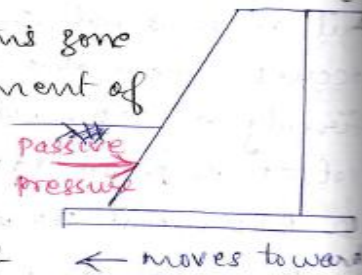 ns zone
ment of
Passive
pressure
← moves towar